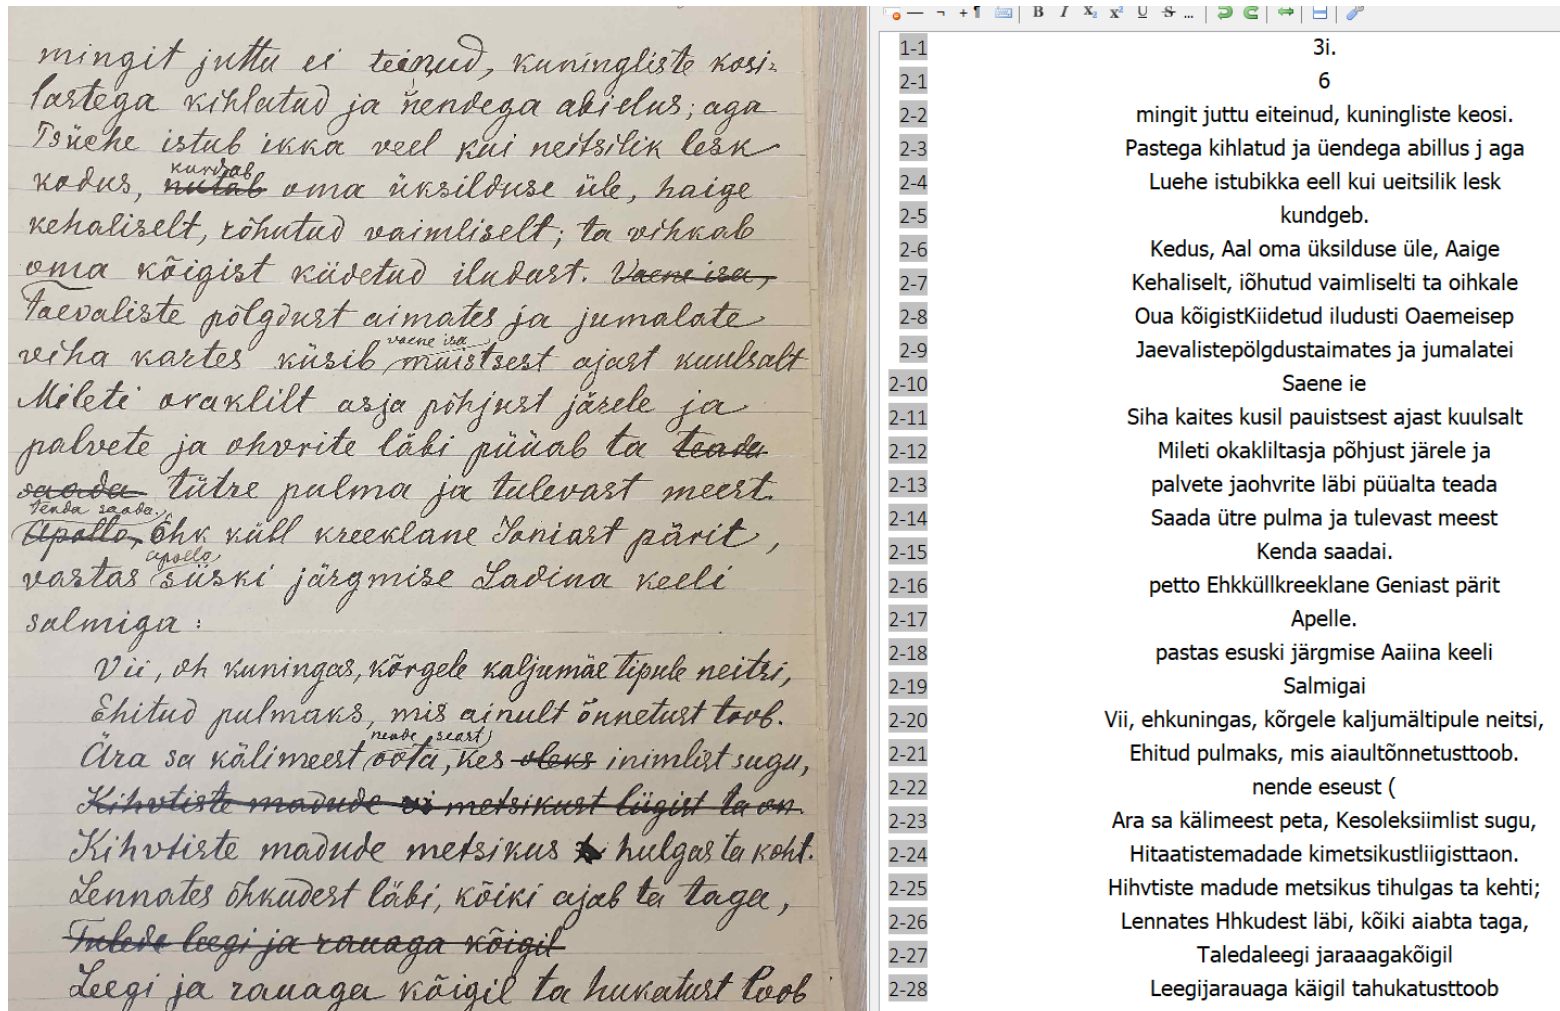 mingit juttu ei teinud, kuningliste kosi-
lastega kihlatud ja nendega abielus; aga
Tsüche istub ikka veel kui neitsilik lesk
kurdab
kodus, nutab oma üksilduse üle, haige
kehaliselt, rõhutud vaimliselt; ta vihkab
oma kõigist kiidetud iludust. Vaene isa,
taevaliste põlgdust aimates ja jumalate
vaene isa
viha kartes küsib muistsest ajast kuulsalt
Mileti oraklilt asja põhjust järele ja
palvete ja ohvrite läbi püüab ta teada
saada tütre pulma ja tulevast meest.
teada saada.
Apollo, Ehk küll kreeklane Joniast pärit,
apollo
vastas siiski järgmise Ladina keeli
salmiga:
Vii, oh kuningas, kõrgele kaljumäe tipule neitsi,
Ehitud pulmaks, mis ainult õnnetust toob.
nende seast
Ära sa kälimeest oota, kes oleks inimlist sugu,
Kihvtiste madude metsikust liigist ta on.
Kihvtiste madude metsikus hulgas ta koht.
Lennates õhkudest läbi, kõiki ajab ta taga,
Tulede leegi ja rauaga kõigil
Leegi ja rauaga kõigil ta hukatust toob
B I X₂ X² U S ...
1-1 3i.
2-1 6
2-2 mingit juttu eiteinud, kuningliste keosi.
2-3 Pastega kihlatud ja üendega abillus j aga
2-4 Luehe istubikka eell kui ueitsilik lesk
2-5 kundgeb.
2-6 Kedus, Aal oma üksilduse üle, Aaige
2-7 Kehaliselt, iõhutud vaimliselti ta oihkale
2-8 Oua kõigistKiidetud iludusti Oaemeisep
2-9 Jaevalistepölgdustaimates ja jumalatei
2-10 Saene ie
2-11 Siha kaites kusil pauistsest ajast kuulsalt
2-12 Mileti okakliltasja põhjust järele ja
2-13 palvete jaohvrite läbi püüalta teada
2-14 Saada ütre pulma ja tulevast meest
2-15 Kenda saadai.
2-16 petto Ehkküllkreeklane Geniast pärit
2-17 Apelle.
2-18 pastas esuski järgmise Aaiina keeli
2-19 Salmigai
2-20 Vii, ehkuningas, kõrgele kaljumältipule neitsi,
2-21 Ehitud pulmaks, mis aiaultõnnetusttoob.
2-22 nende eseust (
2-23 Ara sa kälimeest peta, Kesoleksiimlist sugu,
2-24 Hitaatistemadade kimetsikustliigisttaon.
2-25 Hihvtiste madude metsikus tihulgas ta kehti;
2-26 Lennates Hhkudest läbi, kõiki aiabta taga,
2-27 Taledaleegi jaraaagakõigil
2-28 Leegijarauaga käigil tahukatusttoob